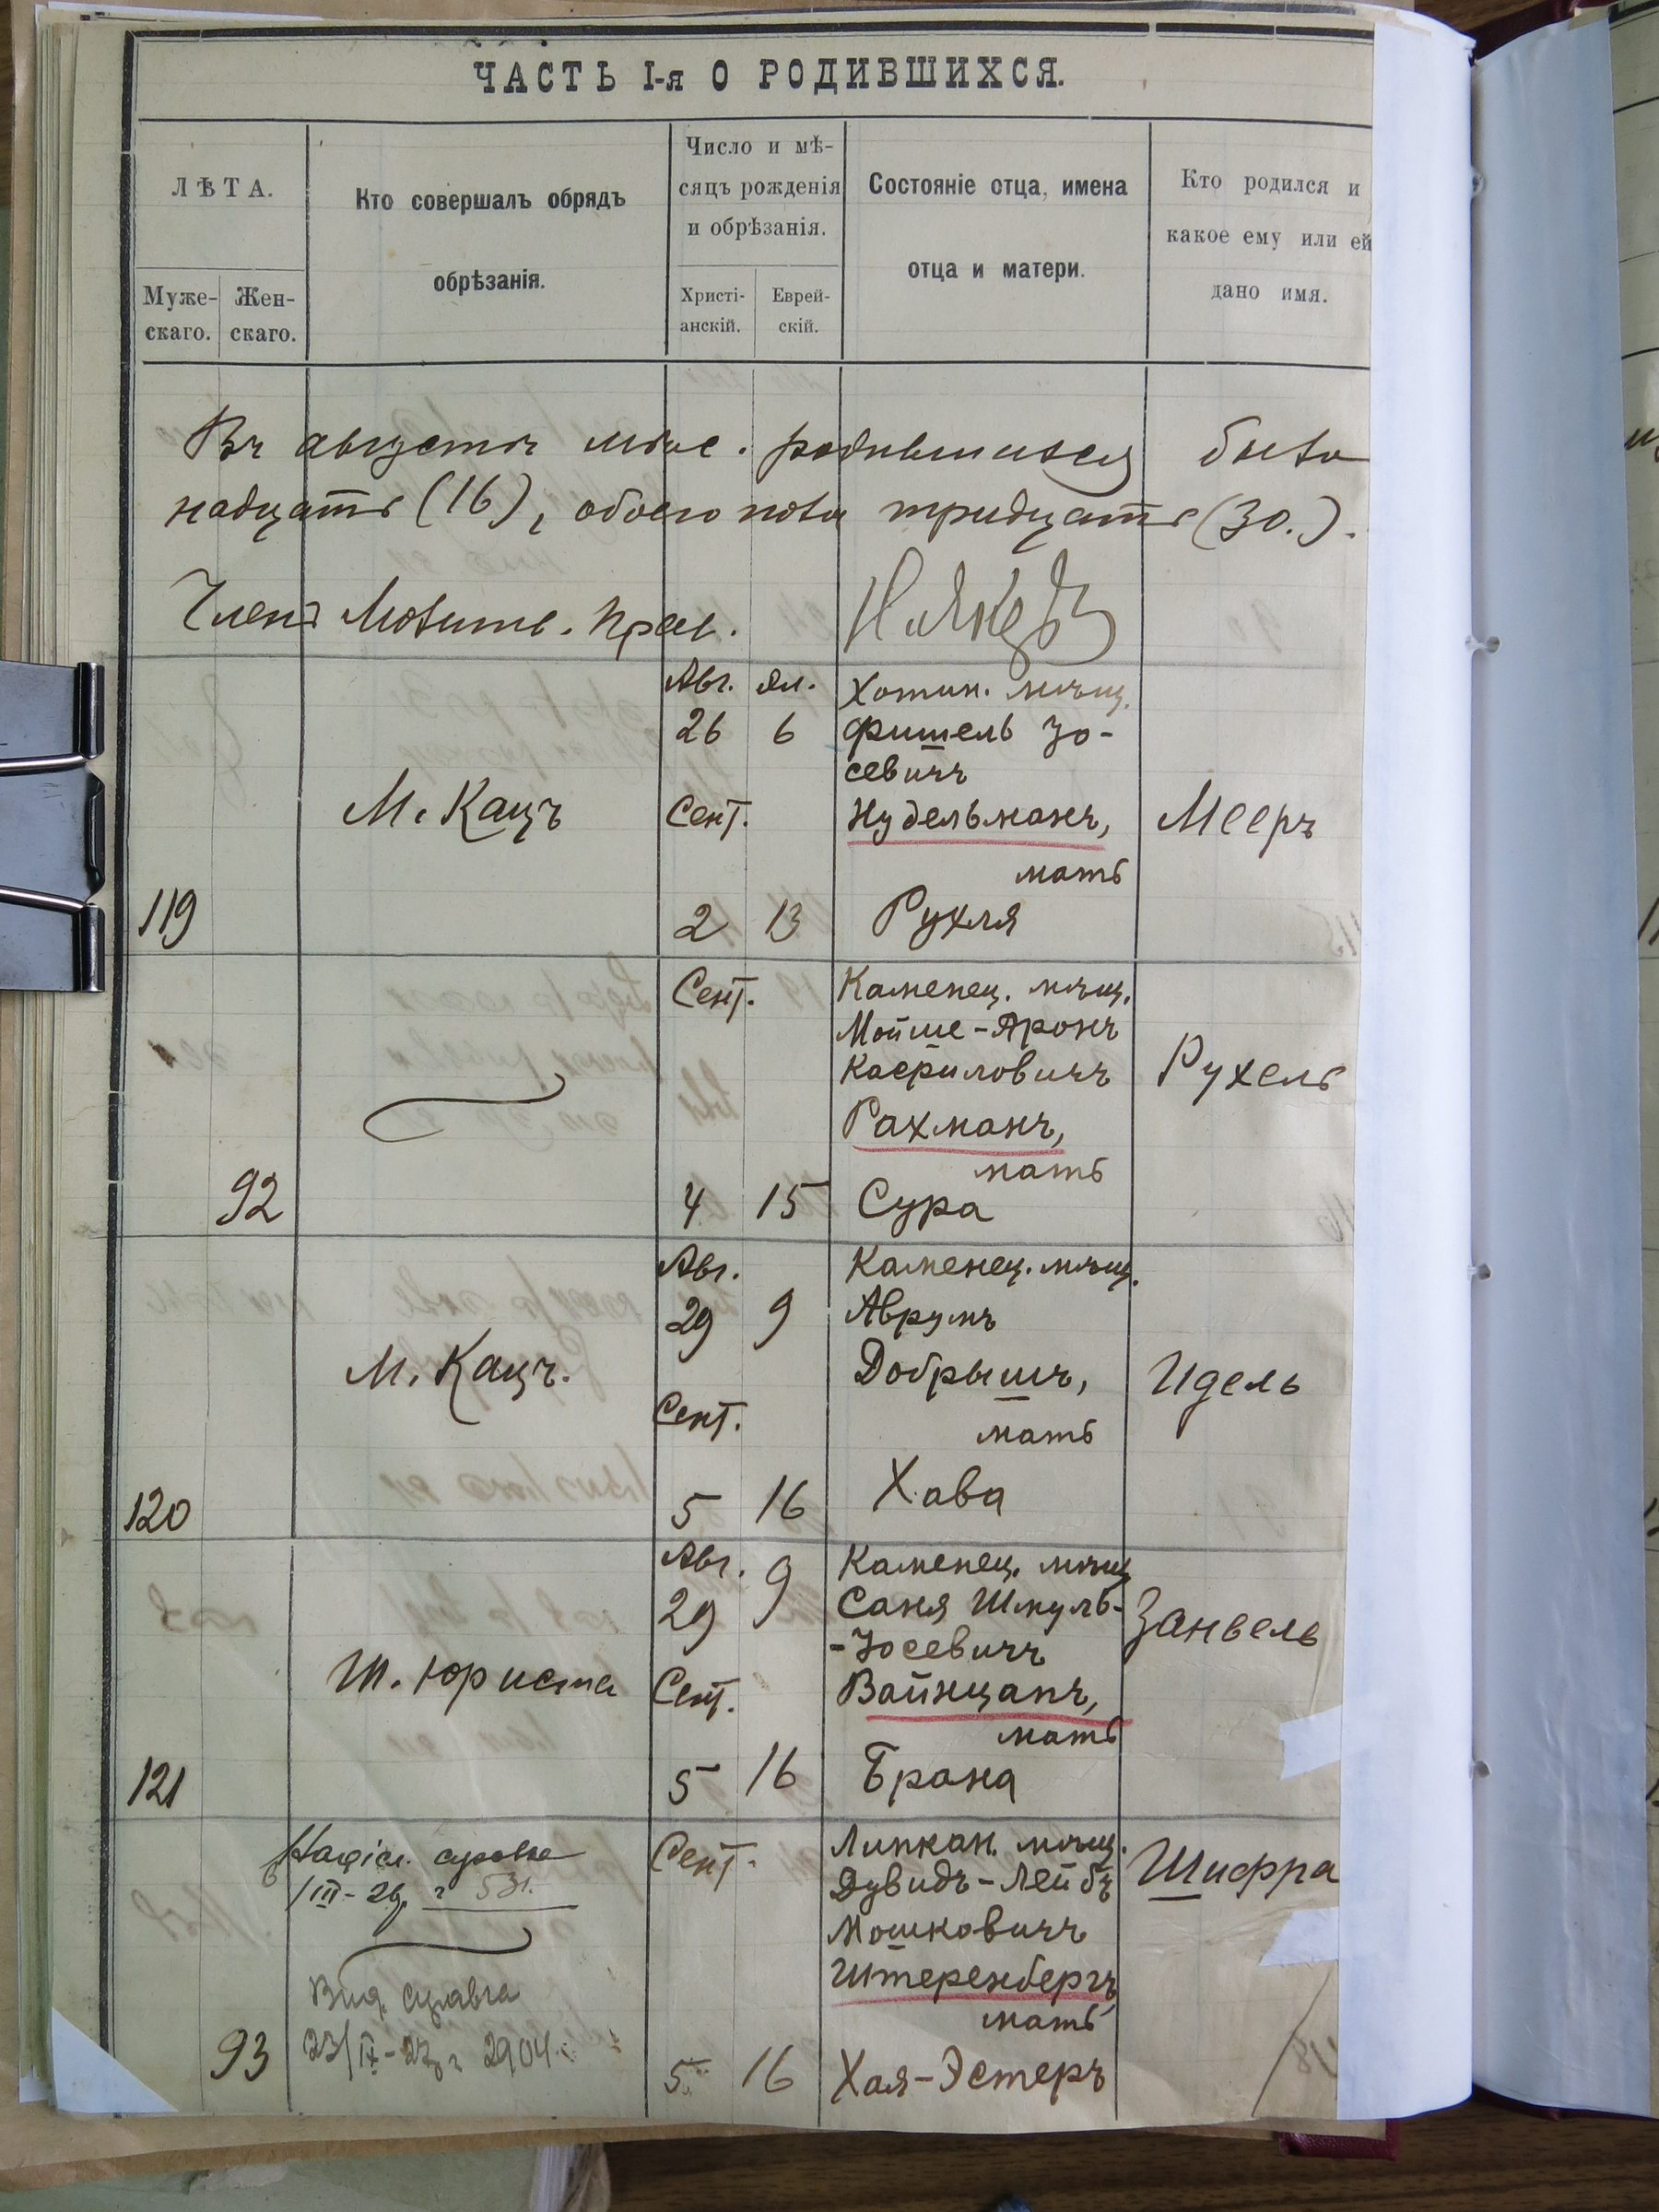 ЧАСТЬ I-я О РОДИВШИХСЯ.
ЛѢТА.
Муже-
скаго.
Жен-
скаго.
Кто совершалъ обрядъ
обрѣзанія.
Число и мѣ-
сяцъ рожденія
и обрѣзанія.
Христі-
анскій.
Еврей-
скій.
Состояніе отца, имена
отца и матери.
Кто родился и
какое ему или ей
дано имя.
Въ августѣ мѣс. родившихся было
надцать (16), обоего пола тридцать (30.).
Членъ Молитв. Прав.
119
М. Кацъ
Авг. Эл.
26 6
Сент.
2 13
Хотин. мѣщ.
Фишель Іо-
севичъ
Нудельманъ,
мать
Рухля
Мееръ
92
Сент.
4 15
Каменец. мѣщ.
Мойше-Аронъ
Касриловичъ
Рахманъ,
мать
Сура
Рухель
120
М. Кацъ.
Авг.
29 9
Сент.
5 16
Каменец. мѣщ.
Аврумъ
Добрышъ,
мать
Хава
Идель
121
Ш. Юриста
Авг.
29 9
Сент.
5 16
Каменец. мѣщ.
Саня Шмуль-
-Іосевичъ
Вайнцапъ,
мать
Брана
Занвель
93
справка
Вид. справка
23/IX-27 г. 2904
Сент.
5 16
Липкан. мѣщ.
Дувидъ-Лейбъ
Мошковичъ
Штеренбергъ,
мать
Хая-Эстеръ
Шифра